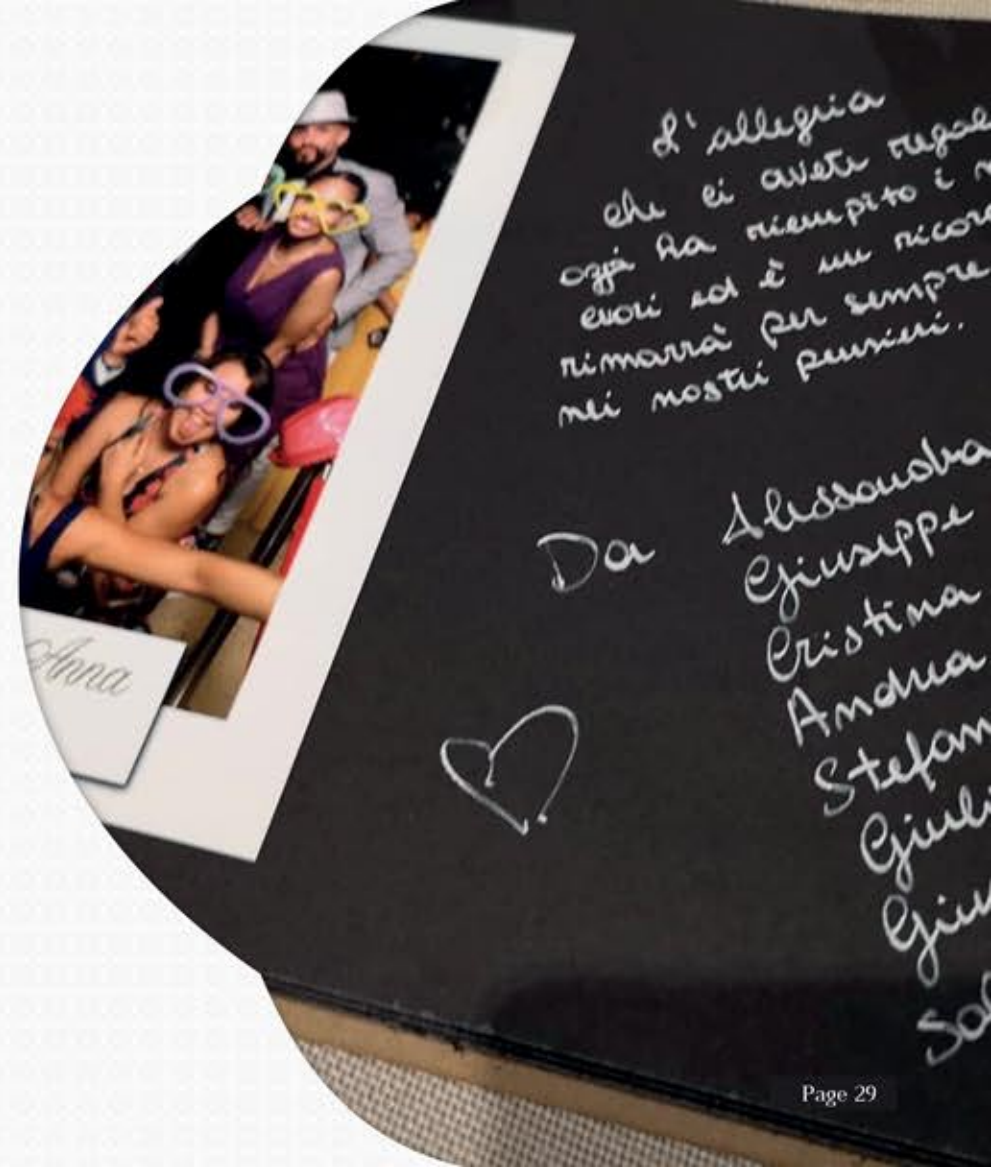 L'allegria
che ci avete regal
oggi ha riempito i n
cuori ed è un ricord
rimarrà per sempre
nei nostri pensieri.
Da Alessandra
Giuseppe
Cristina
Andrea
Stefan
Giuli
Giu
Sal
Anna
Page 29